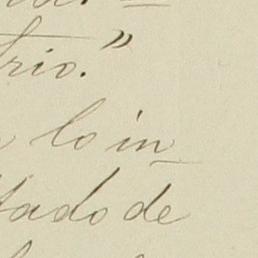 rio.”
lo in
tado de